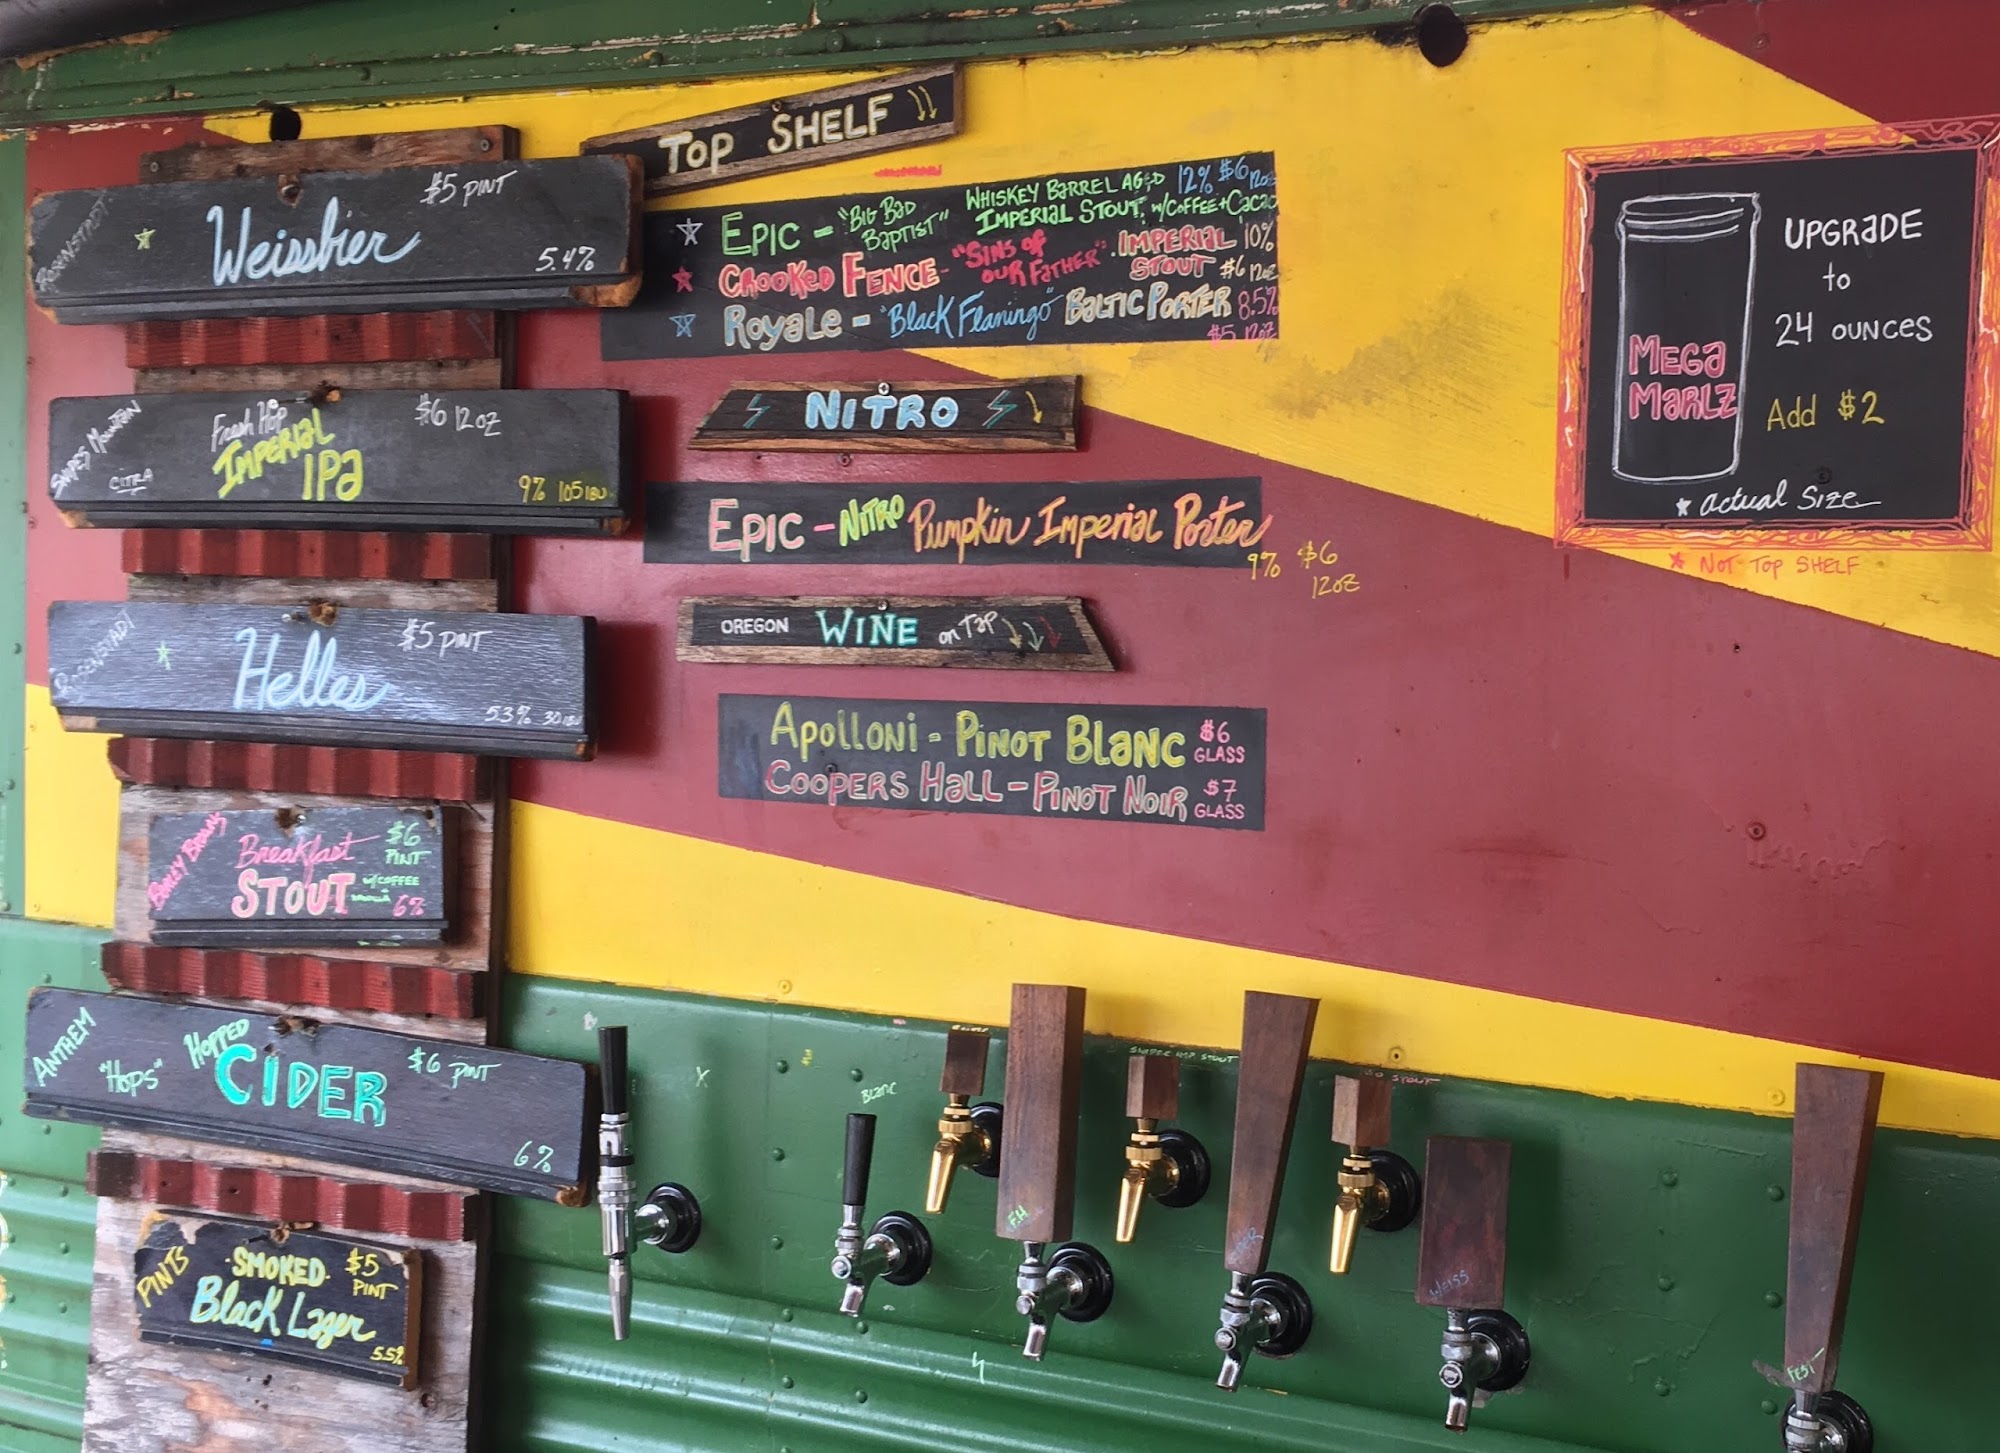 ROSENSTADT
Weissbier
$5 PINT
5.4%
SNIPES MOUNTAIN
CITRA
Fresh Hop
IMPERIAL
IPA
$6 12OZ
9% 105 IBU
ROSENSTADT
Helles
$5 PINT
5.3% 30 IBU
BARLEY BROWNS
Breakfast
STOUT
$6
PINT
W/COFFEE
+
VANILLA
6%
ANTHEM
"HOPS"
HOPPED
CIDER
$6 PINT
6%
PINTS
SMOKED
Black Lager
$5
PINT
5.5%
TOP SHELF
EPIC - "BIG BAD BAPTIST"
WHISKEY BARREL AGED 12% $6 12OZ
IMPERIAL STOUT, W/COFFEE+CACAO
CROOKED FENCE- "SINS OF OUR FATHER". IMPERIAL STOUT 10% $6 12OZ
ROYALE - "Black Flamingo" BALTIC PORTER 8.5%
$5 12OZ
NITRO
EPIC - NITRO Pumpkin Imperial Porter
9% $6
12OZ
OREGON WINE on Tap
APOLLONI - PINOT BLANC $6 GLASS
COOPERS HALL - PINOT NOIR $7 GLASS
MEGA
MARLZ
UPGRADE
to
24 OUNCES
Add $2
* Actual Size
* NOT TOP SHELF
BLANC
F.H
CIDER
WEISS
FEST